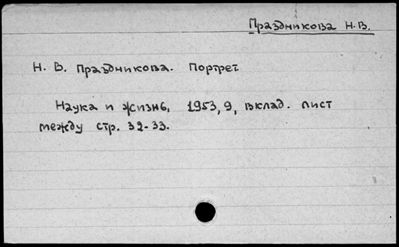 Праздникова Н.В.
Н. В. Праздникова. Портрет
Наука и жизнь, 1953, 9, вклад. лист
между стр. 32-33.